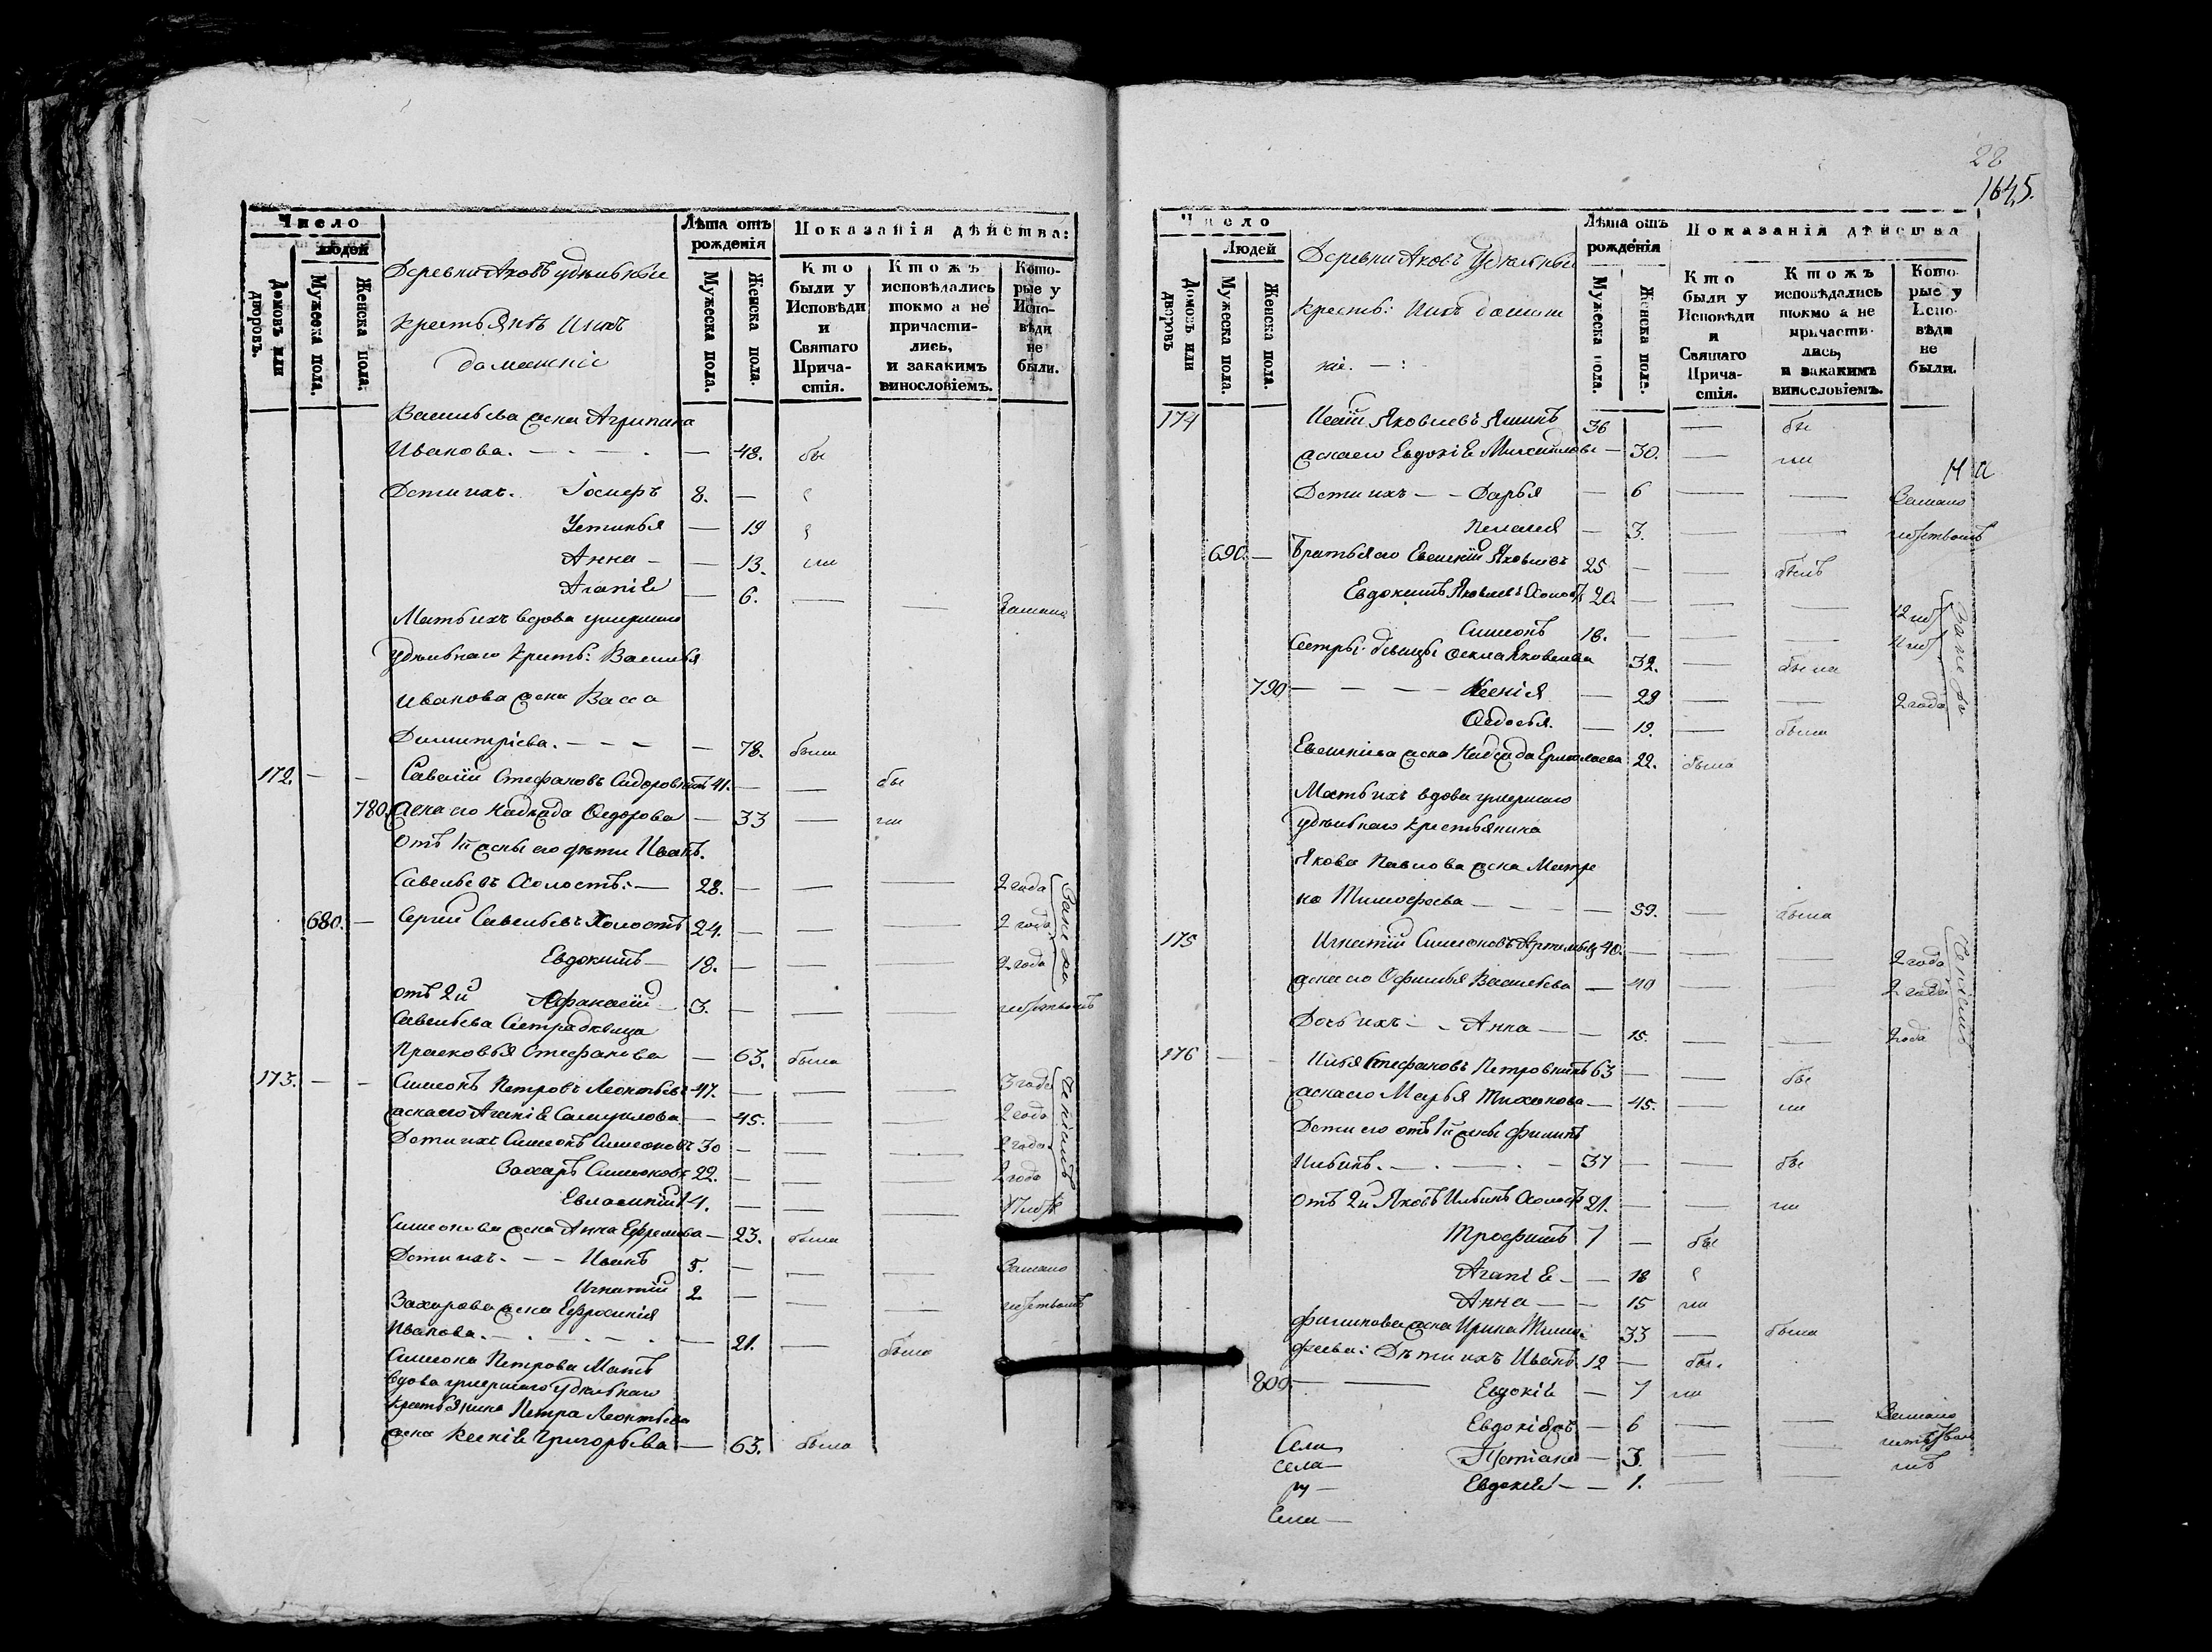 Число
людей
Домовъ или дворовъ.
Мужеска пола.
Женска пола.
Деревни Яковъ удѣльные
крестьянѣ и ихъ
домашніе
Лѣта отъ рожденія
Мужеска пола.
Женска пола.
Показанія дѣйства:
Кто были у Исповѣди и Святаго Прича-стія.
Ктожъ исповѣдались токмо а не причасти-лись, и закакимъ винословіемъ.
Кото-рые у Испо-вѣди не были.
Васильева жена Агрипина
Иванова. — 48. бы
Дети ихъ. Іосифъ 8. —
Устинья — 19
Анна — — 13. ли
Агапія — 6. — — Замало
Мать ихъ вдова умершаго
удѣльнаго кресть: Василья
Иванова жена Васса
Димитріева. — — — — 78. была
172. — — Савелій Стефановъ Сидоровъ 41. — — бы
780. жена его Надежда Федорова — 33 — ли
отъ 1й жены его дѣти Иванъ.
Савельевъ Холостъ: — 28. — — — 2 года
680. — Сергий Савельевъ Холостъ 24. — — — 2 года
Евдокимъ — 18. — — — 2 года
отъ 2й Афанасій — 3. — — —
Савельева Сестра дѣвица
Прасковья Стефанова — 63. была
173. — — Симеонъ Петровъ Леонтьевъ 47. — — — 3 года
жена его Агапія Самуилова — 45. — — 2 года
Дети ихъ Симеонъ Симеоновъ 30 — — — 2 года
Захаръ Симеоновъ 22. — — 2 года
Евлампій 14. — — —
Симеонова жена Анна Ефремова — 23. была
Дети ихъ. — — Иванъ 5. — — — Замало
Игнатій 2 — — —
Захарова жена Ефросинія
Иванова. — 21. — была
Симеона Петрова Мать
вдова умершаго удѣльнаго
крестьянина Петра Леонтьева
жена Ксенія Григорьева — 63. была
28
1645.
Число
Людей
Домовъ или дворовъ
Мужеска пола.
Женска пола.
Деревни Яковъ Удѣльные
кресть: ихъ домаш
ніе. — :
Лѣта отъ рожденія
Мужеска пола.
Женска пола.
Показанія дѣйства
Кто были у Исповѣди и Святаго Прича-стія.
Ктожъ исповѣдались токмо а не причасти-лись, и закакимъ винословіемъ.
Кото-рые у Испо-вѣди не были.
174 Яковлевъ 36 — бы
жена его Евдокія Михайлова — 30. — ли
Дети ихъ — — Дарья — 6 — — Замало
Пелагея — 3. — —
690. — Братья его Евгеній Яковлевъ 25 — — былъ
Евдокимъ Яковлевъ Холостъ 20. — — —
Симеонъ 18. — — —
Сестры дѣвицы Фекла Яковлева 32. — была
790 — — — — Ксенія — 28 — — 2 года
Федосья. — 19. — была
Евгеніева жена Надежда Ермолаева 22. была
Мать ихъ вдова умершаго
удѣльнаго крестьянина
Якова Павлова жена Матре
на Тимофеева — — — — 59. — была
175 Игнатій Симеоновъ 40. — — — 2 года
жена его Офимья Васильева — 40 — — 2 года
Дочь ихъ — — Анна — — 15. — — 2 года
176 — — Илья Стефановъ Петровъ 63 — — бы
жена его Марья Тихонова — 45. — ли
Дети его отъ 1й жены Филипъ
Ильинъ. — 37 — — бы
отъ 2й Яковъ Ильинъ Холостъ 21. — — ли
Трофимъ 7 — бы
Агапія — — 18
Анна — — 15 ли
Филипова жена Ирина Тимо: 33 — была
феева: Дѣти ихъ Иванъ 12 — бы.
800. — — Евдокія — 7 ли
6 — — Замало
Татіана — 3. —
Евдокія — — 1. — —